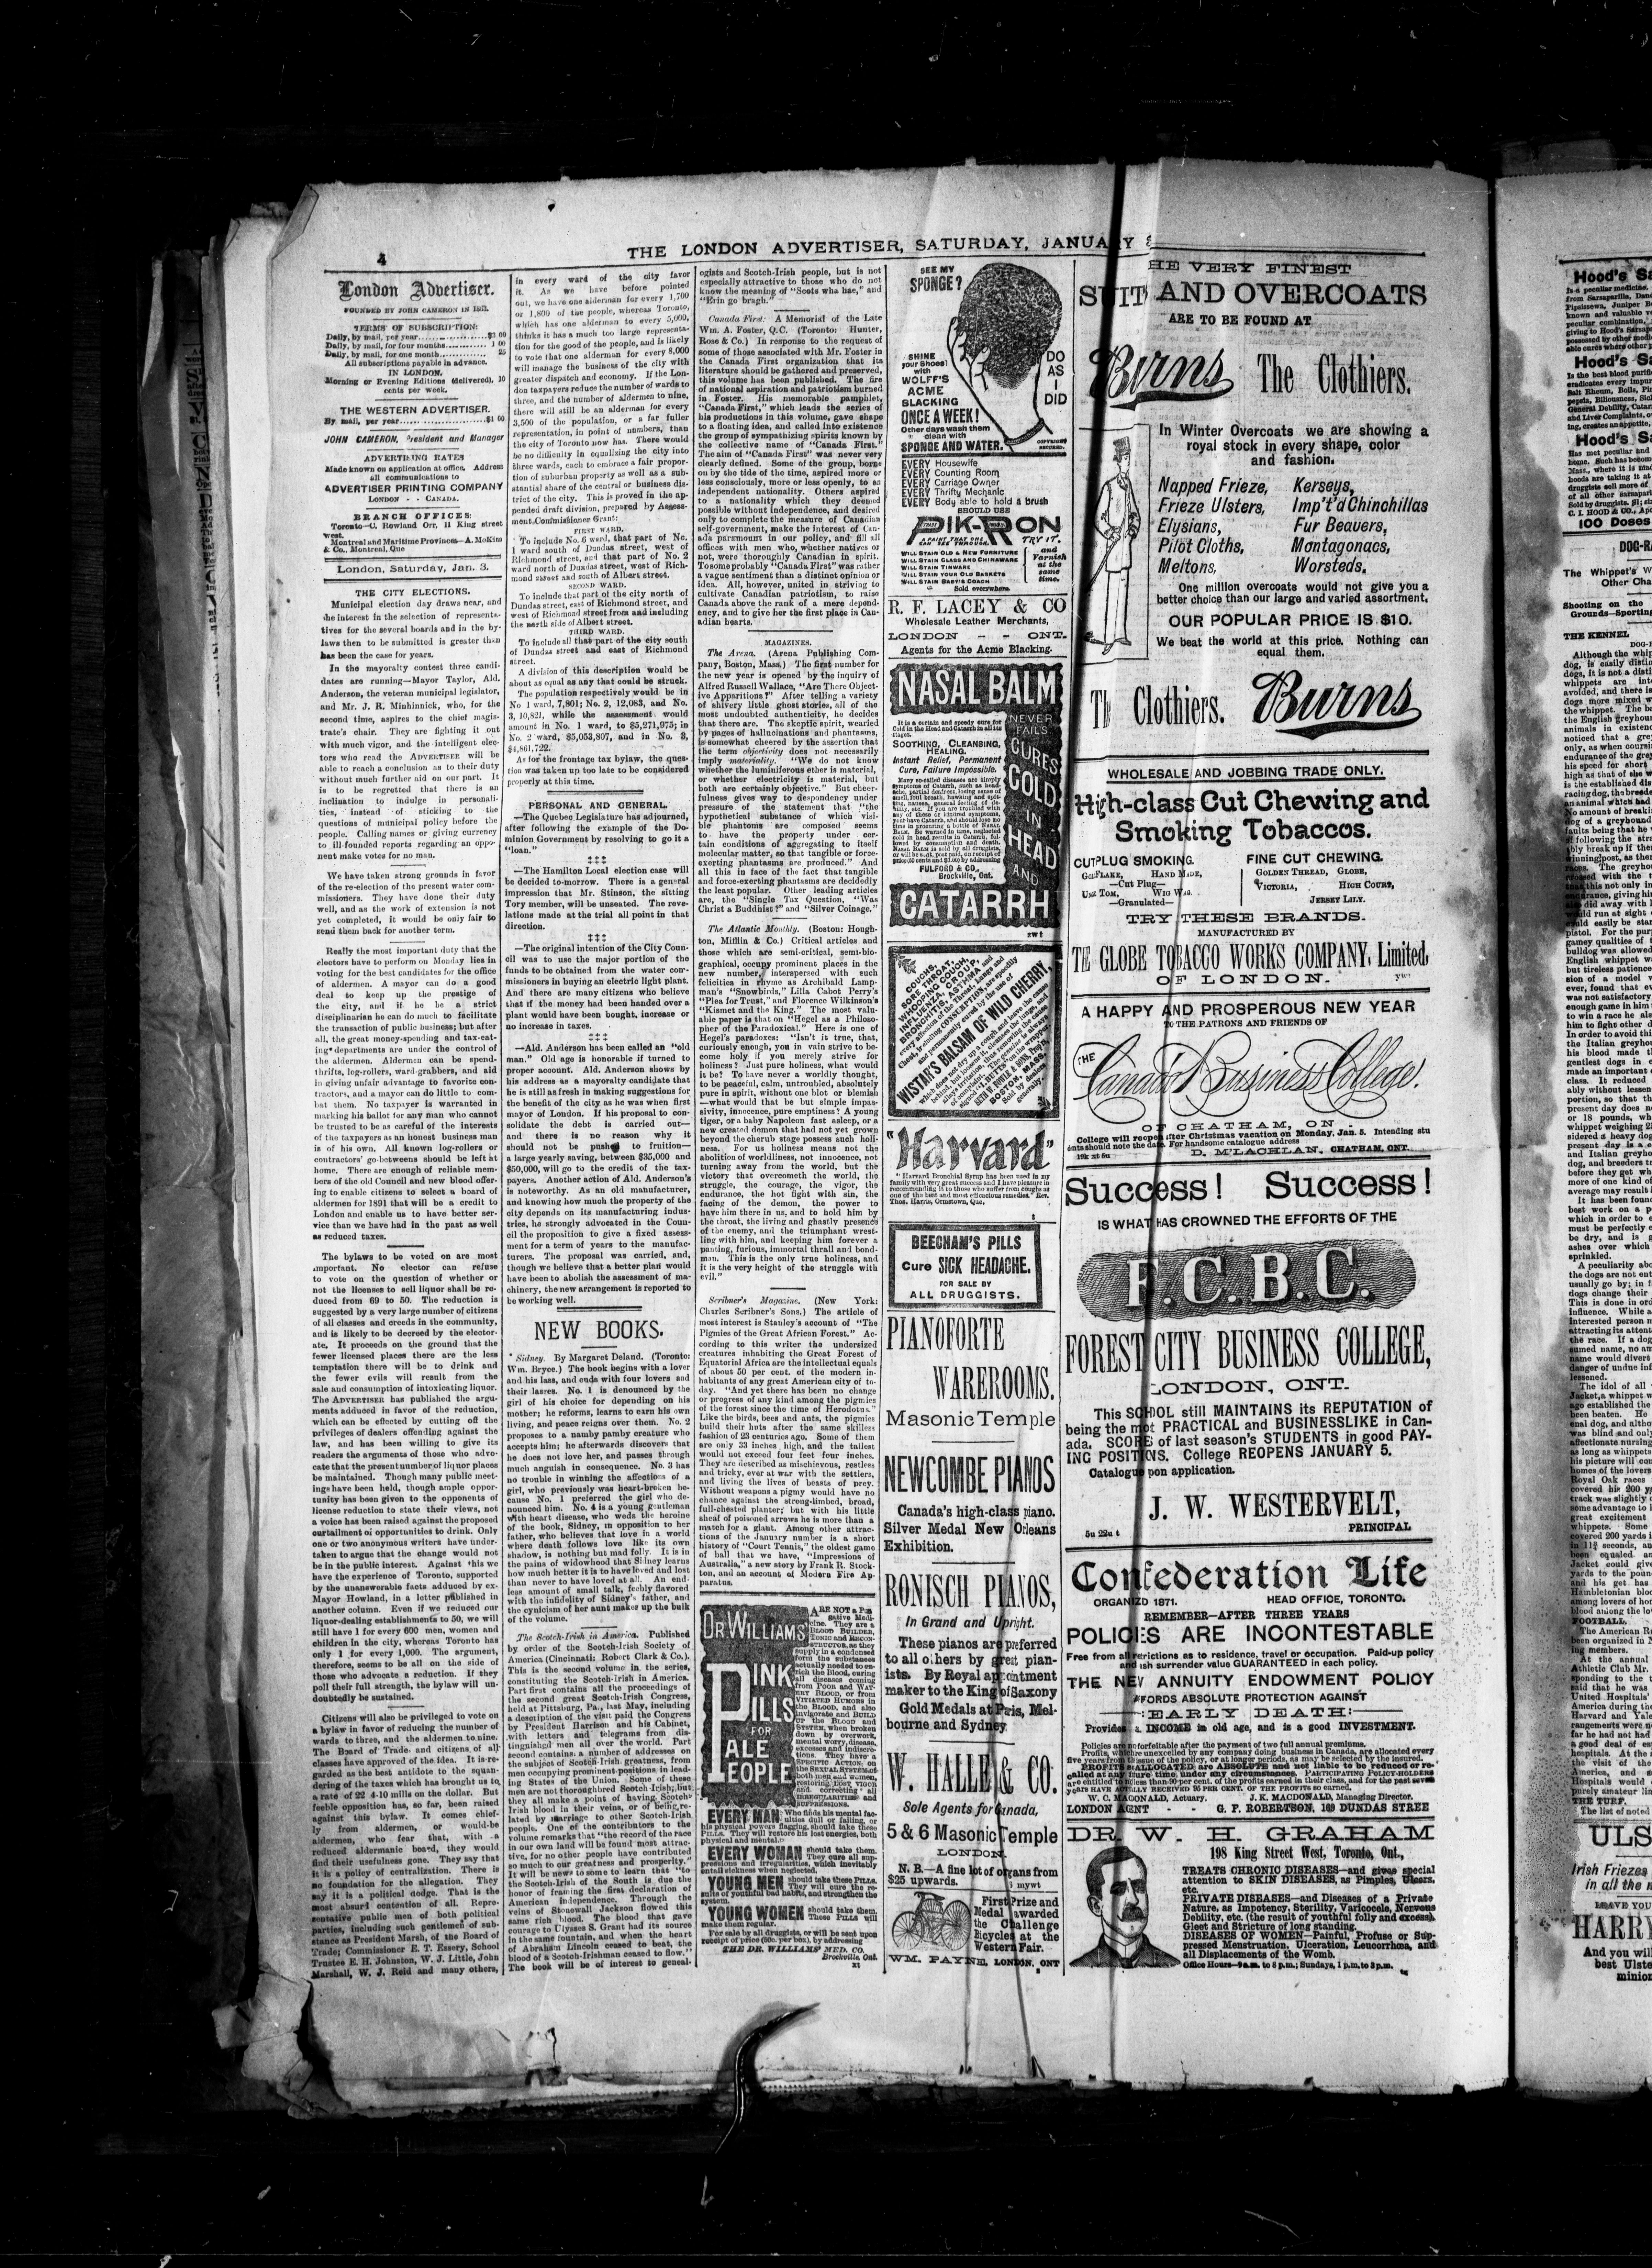 4
THE LONDON ADVERTISER, SATURDAY, JANUARY
London Advertiser.
FOUNDED BY JOHN CAMERON IN 1863.
TERMS OF SUBSCRIPTION:
Daily, by mail, per year
Daily, by mail, for four months 1 00
Daily, by mail, for one month 25
All subscriptions payable in advance.
IN LONDON.
Morning or Evening Editions (delivered), 10
cents per week.
THE WESTERN ADVERTISER.
By mail, per year $1 00
JOHN CAMERON, President and Manager
ADVERTISING RATES
Made known on application at office. Address
all communications to
ADVERTISER PRINTING COMPANY
LONDON - - CANADA.
BRANCH OFFICES:
Toronto—C. Rowland Orr, 11 King street
west.
Montreal and Maritime Provinces—A. McKim
& Co., Montreal, Que
London, Saturday, Jan. 3.
THE CITY ELECTIONS.
Municipal election day draws near, and
the interest in the selection of representa-
tives for the several boards and in the by-
laws then to be submitted is greater than
has been the case for years.
In the mayoralty contest three candi-
dates are running—Mayor Taylor, Ald.
Anderson, the veteran municipal legislator,
and Mr. J. R. Minhinnick, who, for the
second time, aspires to the chief magis-
trate's chair. They are fighting it out
with much vigor, and the intelligent elec-
tors who read the ADVERTISER will be
able to reach a conclusion as to their duty
without much further aid on our part. It
is to be regretted that there is an
inclination to indulge in personali-
ties, instead of sticking to the
questions of municipal policy before the
people. Calling names or giving currency
to ill-founded reports regarding an oppo-
nent make votes for no man.
We have taken strong grounds in favor
of the re-election of the present water com-
missioners. They have done their duty
well, and as the work of extension is not
yet completed, it would be only fair to
send them back for another term.
Really the most important duty that the
electors have to perform on Monday lies in
voting for the best candidates for the office
of aldermen. A mayor can do a good
deal to keep up the prestige of
the city, and if he be a strict
disciplinarian he can do much to facilitate
the transaction of public business; but after
all, the great money-spending and tax-eat-
ing departments are under the control of
the aldermen. Aldermen can be spend-
thrifts, log-rollers, ward-grabbers, and aid
in giving unfair advantage to favorite con-
tractors, and a mayor can do little to com-
bat them. No taxpayer is warranted in
marking his ballot for any man who cannot
be trusted to be as careful of the interests
of the taxpayers as an honest business man
is of his own. All known log-rollers or
contractors' go-betweens should be left at
home. There are enough of reliable mem-
bers of the old Council and new blood offer-
ing to enable citizens to select a board of
aldermen for 1891 that will be a credit to
London and enable us to have better ser-
vice than we have had in the past as well
as reduced taxes.
The bylaws to be voted on are most
important. No elector can refuse
to vote on the question of whether or
not the licenses to sell liquor shall be re-
duced from 69 to 50. The reduction is
suggested by a very large number of citizens
of all classes and creeds in the community,
and is likely to be decreed by the elector-
ate. It proceeds on the ground that the
fewer licensed places there are the less
temptation there will be to drink and
the fewer evils will result from the
sale and consumption of intoxicating liquor.
The ADVERTISER has published the argu-
ments adduced in favor of the reduction,
which can be effected by cutting off the
privileges of dealers offending against the
law, and has been willing to give its
readers the arguments of those who advo-
cate that the present number of liquor places
be maintained. Though many public meet-
ings have been held, though ample oppor-
tunity has been given to the opponents of
license reduction to state their views, not
a voice has been raised against the proposed
curtailment of opportunities to drink. Only
one or two anonymous writers have under-
taken to argue that the change would not
be in the public interest. Against this we
have the experience of Toronto, supported
by the unanswerable facts adduced by ex-
Mayor Howland, in a letter published in
another column. Even if we reduced our
liquor-dealing establishments to 50, we will
still have 1 for every 600 men, women and
children in the city, whereas Toronto has
only 1 for every 1,000. The argument,
therefore, seems to be all on the side of
those who advocate a reduction. If they
poll their full strength, the bylaw will un-
doubtedly be sustained.
Citizens will also be privileged to vote on
a bylaw in favor of reducing the number of
wards to three, and the aldermen to nine.
The Board of Trade and citizens of all
classes have approved of the idea. It is re-
garded as the best antidote to the squan-
dering of the taxes which has brought us to
a rate of 22 4-10 mills on the dollar. But
feeble opposition has, so far, been raised
against this bylaw. It comes chief-
ly from aldermen, or would-be
aldermen, who fear that, with a
reduced aldermanic board, they would
find their usefulness gone. They say that
it is a policy of centralization. There is
no foundation for the allegation. They
say it is a political dodge. That is the
most absurd contention of all. Repre-
sentative public men of both political
parties, including such gentlemen of sub-
stance as President Marsh, of the Board of
Trade; Commissioner E. T. Essery, School
Trustee E. H. Johnston, W. J. Little, John
Marshall, W. J. Reid and many others,
in every ward of the city favor
it. As we have before pointed
out, we have one alderman for every 1,700
or 1,800 of the people, whereas Toronto,
which has one alderman to every 5,000,
thinks it has a much too large representa-
tion for the good of the people, and is likely
to vote that one alderman for every 8,000
will manage the business of the city with
greater dispatch and economy. If the Lon-
don taxpayers reduce the number of wards to
three, and the number of aldermen to nine,
there will still be an alderman for every
3,500 of the population, or a far fuller
representation, in point of numbers, than
the city of Toronto now has. There would
be no difficulty in equalizing the city into
three wards, each to embrace a fair propor-
tion of suburban property as well as a sub-
stantial share of the central or business dis-
trict of the city. This is proved in the ap-
pended draft division, prepared by Assess-
ment Commissioner Grant:
FIRST WARD.
To include No. 6 ward, that part of No.
1 ward south of Dundas street, west of
Richmond street, and that part of No. 2
ward north of Dundas street, west of Rich-
mond street and south of Albert street.
SECOND WARD.
To include that part of the city north of
Dundas street, east of Richmond street, and
west of Richmond street from and including
the north side of Albert street.
THIRD WARD.
To include all that part of the city south
of Dundas street and east of Richmond
street.
A division of this description would be
about as equal as any that could be struck.
The population respectively would be in
No 1 ward, 7,801; No. 2, 12,083, and No.
3, 10,821, while the assessment would
amount in No. 1 ward, to $5,271,975; in
No. 2 ward, $5,053,807, and in No. 3,
$4,861,722.
As for the frontage tax bylaw, the ques-
tion was taken up too late to be considered
properly at this time.
PERSONAL AND GENERAL.
—The Quebec Legislature has adjourned,
after following the example of the Do-
minion Government by resolving to go it a
"loan."
‡‡‡
—The Hamilton Local election case will
be decided to-morrow. There is a general
impression that Mr. Stinson, the sitting
Tory member, will be unseated. The reve-
lations made at the trial all point in that
direction.
‡‡‡
—The original intention of the City Coun-
cil was to use the major portion of the
funds to be obtained from the water com-
missioners in buying an electric light plant.
And there are many citizens who believe
that if the money had been handed over a
plant would have been bought, increase or
no increase in taxes.
‡‡‡
—Ald. Anderson has been called an "old
man." Old age is honorable if turned to
proper account. Ald. Anderson shows by
his address as a mayoralty candidate that
he is still as fresh in making suggestions for
the benefit of the city as he was when first
mayor of London. If his proposal to con-
solidate the debt is carried out—
and there is no reason why it
should not be pushed to fruition—
a large yearly saving, between $35,000 and
$50,000, will go to the credit of the tax-
payers. Another action of Ald. Anderson's
is noteworthy. As an old manufacturer,
and knowing how much the property of the
city depends on its manufacturing indus-
tries, he strongly advocated in the Coun-
cil the proposition to give a fixed assess-
ment for a term of years to the manufac-
turers. The proposal was carried, and,
though we believe that a better plan would
have been to abolish the assessment of ma-
chinery, the new arrangement is reported to
be working well.
NEW BOOKS.
Sidney. By Margaret Deland. (Toronto:
Wm. Bryce.) The book begins with a lover
and his lass, and ends with four lovers and
their lasses. No. 1 is denounced by the
girl of his choice for depending on his
mother; he reforms, learns to earn his own
living, and peace reigns over them. No. 2
proposes to a namby pamby creature who
accepts him; he afterwards discovers that
he does not love her, and passes through
much anguish in consequence. No. 3 has
no trouble in winning the affections of a
girl, who previously was heart-broken be-
cause No. 1 preferred the girl who de-
nounced him. No. 4 is a young gentleman
with heart disease, who weds the heroine
of the book, Sidney, in opposition to her
father, who believes that love in a world
where death follows love like its own
shadow, is nothing but mad folly. It is in
the pains of widowhood that Sidney learns
how much better it is to have loved and lost
than never to have loved at all. An end-
less amount of small talk, feebly flavored
with the infidelity of Sidney's father, and
the cynicism of her aunt makes up the bulk
of the volume.
The Scotch-Irish in America. Published
by order of the Scotch-Irish Society of
America (Cincinnati: Robert Clark & Co.).
This is the second volume in the series,
constituting the Scotch-Irish in America.
Part first contains all the proceedings of
the second great Scotch-Irish Congress,
held at Pittsburg, Pa., last May, including
a description of the visit paid the Congress
by President Harrison and his Cabinet,
with letters and telegrams from dis-
tinguished men all over the world. Part
second contains a number of addresses on
the subject of Scotch-Irish greatness, from
men occupying prominent positions in lead-
ing States of the Union. Some of these
men are not thoroughbred Scotch-Irish, but
they all make a point of having Scotch-
Irish blood in their veins, or of being re-
lated by marriage to other Scotch-Irish
people. One of the contributors to the
volume remarks that "the record of the race
in our own land will be found most attrac-
tive, for no other people have contributed
so much to our greatness and prosperity."
It will be news to some to learn that "to
the Scotch-Irish of the South is due the
honor of framing the first declaration of
American independence. Through the
veins of Stonewall Jackson flowed this
same rich blood. The blood that gave
courage to Ulysses S. Grant had its source
in the same fountain, and when the heart
of Abraham Lincoln ceased to beat, the
blood of a Scotch-Irishman ceased to flow."
The book will be of interest to geneal-
ogists and Scotch-Irish people, but is not
especially attractive to those who do not
know the meaning of "Scots wha hae," and
"Erin go bragh."
Canada First: A Memorial of the Late
Wm. A. Foster, Q.C. (Toronto: Hunter,
Rose & Co.) In response to the request of
some of those associated with Mr. Foster in
the Canada First organization that its
literature should be gathered and preserved,
this volume has been published. The fire
of national aspiration and patriotism burned
in Foster. His memorable pamphlet,
"Canada First," which leads the series of
his productions in this volume, gave shape
to a floating idea, and called into existence
the group of sympathizing spirits known by
the collective name of "Canada First."
The aim of "Canada First" was never very
clearly defined. Some of the group, borne
on by the tide of the time, aspired more or
less consciously, more or less openly, to an
independent nationality. Others aspired
to a nationality which they deemed
possible without independence, and desired
only to complete the measure of Canadian
self-government, make the interest of Can-
ada paramount in our policy, and fill all
offices with men who, whether natives or
not, were thoroughly Canadian in spirit.
To some probably "Canada First" was rather
a vague sentiment than a distinct opinion or
idea. All, however, united in striving to
cultivate Canadian patriotism, to raise
Canada above the rank of a mere depend-
ency, and to give her the first place in Can-
adian hearts.
MAGAZINES.
The Arena. (Arena Publishing Com-
pany, Boston, Mass.) The first number for
the new year is opened by the inquiry of
Alfred Russell Wallace, "Are There Object-
ive Apparitions?" After telling a variety
of shivery little ghost stories, all of the
most undoubted authenticity, he decides
that there are. The skeptic spirit, wearied
by pages of hallucinations and phantasms,
is somewhat cheered by the assertion that
the term objectivity does not necessarily
imply materiality. "We do not know
whether the luminiferous ether is material,
or whether electricity is material, but
both are certainly objective." But cheer-
fulness gives way to despondency under
pressure of the statement that "the
hypothetical substance of which visi-
ble phantoms are composed seems
to have the property under cer-
tain conditions of aggregating to itself
molecular matter, so that tangible or force-
exerting phantasms are produced." And
all this in face of the fact that tangible
and force-exerting phantasms are decidedly
the least popular. Other leading articles
are, the "Single Tax Question, "Was
Christ a Buddhist?" and "Silver Coinage."
The Atlantic Monthly. (Boston: Hough-
ton, Mifflin & Co.) Critical articles and
those which are semi-critical, semi-bio-
graphical, occupy prominent places in the
new number, interspersed with such
felicities in rhyme as Archibald Lamp-
man's "Snowbirds," Lilla Cabot Perry's
"Plea for Trust," and Florence Wilkinson's
"Kismet and the King." The most valu-
able paper is that on "Hegel as a Philoso-
pher of the Paradoxical." Here is one of
Hegel's paradoxes: "Isn't it true, that,
curiously enough, you in vain strive to be-
come holy if you merely strive for
holiness? Just pure holiness, what would
it be? To have never a worldly thought,
to be peaceful, calm, untroubled, absolutely
pure in spirit, without one blot or blemish
—what would that be but simple impas-
sivity, innocence, pure emptiness? A young
tiger, or a baby Napoleon fast asleep, or a
new created demon that had not yet grown
beyond the cherub stage possess such holi-
ness. For us holiness means not the
abolition of worldliness, not innocence, not
turning away from the world, but the
victory that overcometh the world, the
struggle, the courage, the vigor, the
endurance, the hot fight with sin, the
facing of the demon, the power to
have him there in us, and to hold him by
the throat, the living and ghastly presence
of the enemy, and the triumphant wrest-
ling with him, and keeping him forever a
panting, furious, immortal thrall and bond-
man. This is the only true holiness, and
it is the very height of the struggle with
evil."
Scribner's Magazine. (New York:
Charles Scribner's Sons.) The article of
most interest is Stanley's account of "The
Pigmies of the Great African Forest." Ac-
cording to this writer the undersized
creatures inhabiting the Great Forest of
Equatorial Africa are the intellectual equals
of about 50 per cent. of the modern in-
habitants of any great American city of to-
day. "And yet there has been no change
or progress of any kind among the pigmies
of the forest since the time of Herodotus."
Like the birds, bees and ants, the pigmies
build their huts after the same skilless
fashion of 23 centuries ago. Some of them
are only 33 inches high, and the tallest
would not exceed four feet four inches.
They are described as mischievous, restless
and tricky, ever at war with the settlers,
and living the lives of beasts of prey.
Without weapons a pigmy would have no
chance against the strong-limbed, broad,
full-chested planter; but with his little
sheaf of poisoned arrows he is more than a
match for a giant. Among other attrac-
tions of the January number is a short
history of "Court Tennis," the oldest game
of ball that we have, "Impressions of
Australia," a new story by Frank R. Stock-
ton, and an account of Modern Fire Ap-
paratus.
DR WILLIAMS'
PINK
PILLS
FOR
PALE
PEOPLE
ARE NOT a Pur-
gative Medi-
cine. They are a
BLOOD BUILDER,
TONIC and RECON-
STRUCTOR, as they
supply in a condensed
form the substances
actually needed to en-
rich the Blood, curing
all diseases coming
from POOR and WAT-
ERY BLOOD, or from
VITIATED HUMORS in
the BLOOD, and also
invigorate and BUILD
UP the BLOOD and
SYSTEM, when broken
down by overwork,
mental worry, disease,
excesses and indiscre-
tions. They have a
SPECIFIC ACTION on
the SEXUAL SYSTEM of
both men and women,
restoring LOST VIGOR
and correcting all
IRREGULARITIES and
SUPPRESSIONS.
EVERY MAN Who finds his mental fac-
ulties dull or failing, or
his physical powers flagging, should take these
PILLS. They will restore his lost energies, both
physical and mental.
EVERY WOMAN should take them.
They cure all sup-
pressions and irregularities, which inevitably
entail sickness when neglected.
YOUNG MEN should take these PILLS.
They will cure the re-
sults of youthful bad habits, and strengthen the
system.
YOUNG WOMEN should take them.
These PILLS will
make them regular.
For sale by all druggists, or will be sent upon
receipt of price (50c. per box), by addressing
THE DR. WILLIAMS' MED. CO.
Brockville, Ont.
SEE MY
SPONGE?
SHINE
your Shoes
with
WOLFF'S
ACME
BLACKING
ONCE A WEEK!
Other days wash them
clean with
SPONGE AND WATER.
DO
AS
I
DID
EVERY Housewife
EVERY Counting Room
EVERY Carriage Owner
EVERY Thrifty Mechanic
EVERY Body able to hold a brush
SHOULD USE
PIK-RON
A PAINT THAT ONE CAN SEE THROUGH. TRY IT.
WILL STAIN OLD & NEW FURNITURE
WILL STAIN GLASS AND CHINAWARE
WILL STAIN TINWARE
WILL STAIN YOUR OLD BASKETS
WILL STAIN BABY'S COACH
and
Varnish
at the
same
time.
Sold everywhere
R. F. LACEY & CO
Wholesale Leather Merchants,
LONDON - - ONT.
Agents for the Acme Blacking.
NASAL BALM
It is a certain and speedy cure for
Cold in the Head and Catarrh in all its
stages.
SOOTHING, CLEANSING,
HEALING.
Instant Relief, Permanent
Cure, Failure Impossible.
Many so-called diseases are simply
symptoms of Catarrh, such as head-
ache, partial deafness, losing sense of
smell, foul breath, hawking and spit-
ting, nausea, general feeling of de-
bility, etc. If you are troubled with
any of these or kindred symptoms,
your have Catarrh, and should lose no
time in procuring a bottle of NASAL
BALM. Be warned in time, neglected
cold in head results in Catarrh, fol-
lowed by consumption and death.
NASAL BALM is sold by all druggists,
or will be sent, post paid, on receipt of
price (50 cents and $1.00) by addressing
FULFORD & CO.,
Brockville, Ont.
NEVER
FAILS
CURES
COLD
IN
HEAD
AND
CATARRH
COUGHS,
SORE THROAT,
WHOOPING COUGH,
INFLUENZA, CROUP,
BRONCHITIS, ASTHMA and
every affection of the Throat, Lungs and
Chest, including CONSUMPTION, are speedily
and permanently cured by the use of
WISTAR'S BALSAM OF WILD CHERRY,
BOSTON, MASS.
"Harvard"
"Harvard Bronchial Syrup has been used in my
family with very great success and I have pleasure in
recommending it to those who suffer from coughs as
one of the best and most efficacious remedies." Rev.
Thos. Harris, Ormstown, Que.
BEECHAM'S PILLS
Cure SICK HEADACHE.
FOR SALE BY
ALL DRUGGISTS.
PIANOFORTE
WAREROOMS.
Masonic Temple
NEWCOMBE PIANOS
Canada's high-class piano.
Silver Medal New Orleans
Exhibition.
RONISCH PIANOS,
In Grand and Upright.
These pianos are preferred
to all others by great pian-
ists. By Royal appointment
maker to the King of Saxony
Gold Medals at Paris, Mel-
bourne and Sydney.
W. HALLE & CO.
Sole Agents for Canada,
5 & 6 Masonic Temple
LONDON.
N. B.—A fine lot of organs from
$25 upwards. mywt
First Prize and
Medal awarded
the Challenge
Bicycles at the
Western Fair.
WM. PAYNE, LONDON, ONT
HE VERY FINEST
SUITS AND OVERCOATS
ARE TO BE FOUND AT
Burns The Clothiers.
In Winter Overcoats we are showing a
royal stock in every shape, color
and fashion.
Napped Frieze, Kerseys,
Frieze Ulsters, Imp't'd Chinchillas
Elysians, Fur Beavers,
Pilot Cloths, Montagonacs,
Meltons, Worsteds.
One million overcoats would not give you a
better choice than our large and varied assortment.
OUR POPULAR PRICE IS $10.
We beat the world at this price. Nothing can
equal them.
Th Clothiers. Burns
WHOLESALE AND JOBBING TRADE ONLY.
High-class Cut Chewing and
Smoking Tobaccos.
CUT PLUG SMOKING. FINE CUT CHEWING.
HAND MADE, GOLDEN THREAD, GLOBE,
—Cut Plug— VICTORIA, HIGH COURT,
TOM, WIG WAG. JERSEY LILY.
—Granulated—
TRY THESE BRANDS.
MANUFACTURED BY
THE GLOBE TOBACCO WORKS COMPANY, Limited,
OF LONDON. yw
A HAPPY AND PROSPEROUS NEW YEAR
TO THE PATRONS AND FRIENDS OF
THE
Canada Business College.
OF CHATHAM, ON
College will reopen after Christmas vacation on Monday, Jan. 5. Intending stu
ents should note the date. For handsome catalogue address
D. M'LACHLAN, CHATHAM, ONT.
Success! Success!
IS WHAT HAS CROWNED THE EFFORTS OF THE
F.C.B.C.
FOREST CITY BUSINESS COLLEGE,
LONDON, ONT.
This SCHOOL still MAINTAINS its REPUTATION of
being the most PRACTICAL and BUSINESSLIKE in Can-
ada. SCORE of last season's STUDENTS in good PAY-
ING POSITIONS. College REOPENS JANUARY 5.
Catalogue upon application.
J. W. WESTERVELT,
5u 22u t PRINCIPAL
Confederation Life
ORGANIZED 1871. HEAD OFFICE, TORONTO.
REMEMBER—AFTER THREE YEARS
POLICIES ARE INCONTESTABLE
Free from all restrictions as to residence, travel or occupation. Paid-up policy
and cash surrender value GUARANTEED in each policy.
THE NEW ANNUITY ENDOWMENT POLICY
AFFORDS ABSOLUTE PROTECTION AGAINST
EARLY DEATH:
Provides an INCOME in old age, and is a good INVESTMENT.
Policies are nonforfeitable after the payment of two full annual premiums.
Profits, which are unexcelled by any company doing business in Canada, are allocated every
five years from the issue of the policy, or at longer periods, as may be selected by the insured.
PROFITS so ALLOCATED are ABSOLUTE and not liable to be reduced or re-
called at any future time under any circumstances. PARTICIPATING POLICY-HOLDERS
are entitled to not less than 90 per cent. of the profits earned in their class, and for the past seven
years HAVE ACTUALLY RECEIVED 95 PER CENT. OF THE PROFITS so earned.
W. C. MACDONALD, Actuary. J. K. MACDONALD, Managing Director.
LONDON AGENT - - G. F. ROBERTSON, 169 DUNDAS STREE
DR. W. H. GRAHAM
198 King Street West, Toronto, Ont.,
TREATS CHRONIC DISEASES—and gives special
attention to SKIN DISEASES, as Pimples, Ulcers,
etc.
PRIVATE DISEASES—and Diseases of a Private
Nature, as Impotency, Sterility, Varicocele, Nervous
Debility, etc. (the result of youthful folly and excess),
Gleet and Stricture of long standing.
DISEASES OF WOMEN—Painful, Profuse or Sup-
pressed Menstruation, Ulceration, Leucorrhœa, and
all Displacements of the Womb.
Office Hours—9 a.m. to 8 p.m.; Sundays, 1 p.m. to 3 p.m.
Hood's
is a peculiar medicine,
Hood's
Hood's
C. I. HOOD & CO.,
100 Doses
The Whippet's
Other
Shooting on the
Grounds—Sporting
THE KENNEL
FOOTBALL.
THE TURF.
The list of noted
ULS
Irish Friezes
in all the
LEAVE YOU
HARRY
And you will
best Ulste
minion